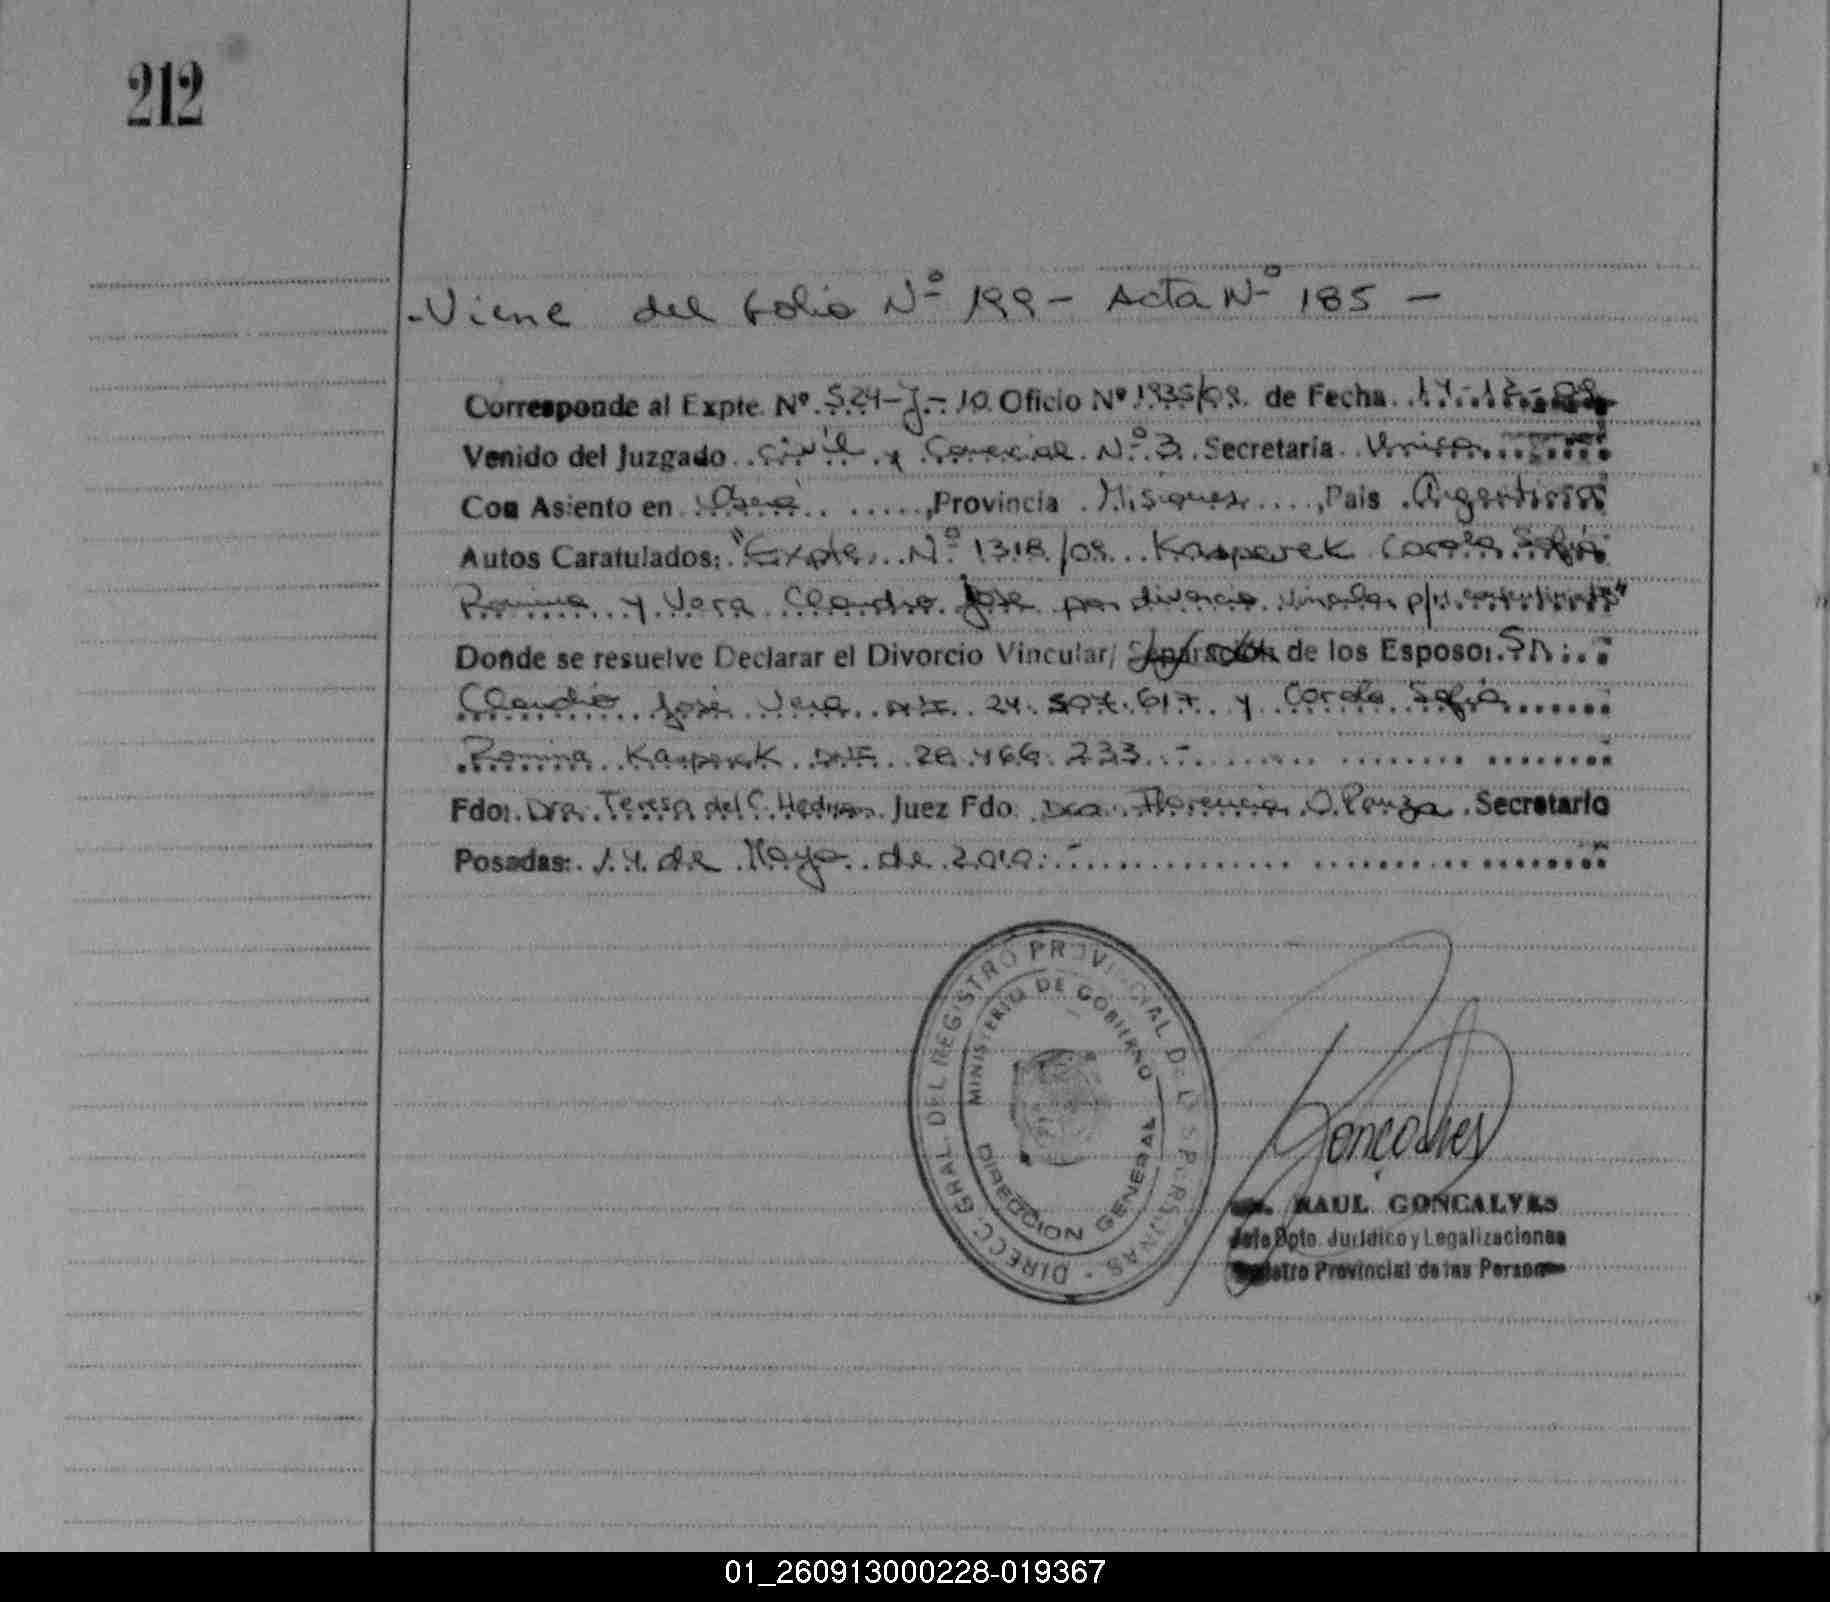 212
-Viene del folio Nº 199 - Acta Nº 185 -
Corresponde al Expte. Nº 524-J-10 Oficio Nº 1935/09 de Fecha 14-12-09
Venido del Juzgado Civil y Comercial Nº 3 Secretaría Unica
Con Asiento en Oberá, Provincia Misiones, País Argentina
Autos Caratulados: "Expte. Nº 1318/09 Kasperek Carola Sofía
Romina y Vera Claudio José por divorcio vincular p/
Donde se resuelve Declarar el Divorcio Vincular/ Separación de los Esposo: Sr.
Claudio José Vera DNI 24.507.617 y Carola Sofía
Romina Kasperek DNI 28.466.233.-
Fdo: Dra. Teresa del C. Juez Fdo. Dra. Florencia O. Panza Secretario
Posadas: 14 de Mayo de 2010.-
DIRECC. GRAL. DEL REGISTRO PROVINCIAL DE LAS PERSONAS
MINISTERIO DE GOBIERNO
DIRECCION GENERAL
Goncalves
RAUL GONCALVES
Jefe Dpto. Jurídico y Legalizaciones
Registro Provincial de las Personas
01_260913000228-019367